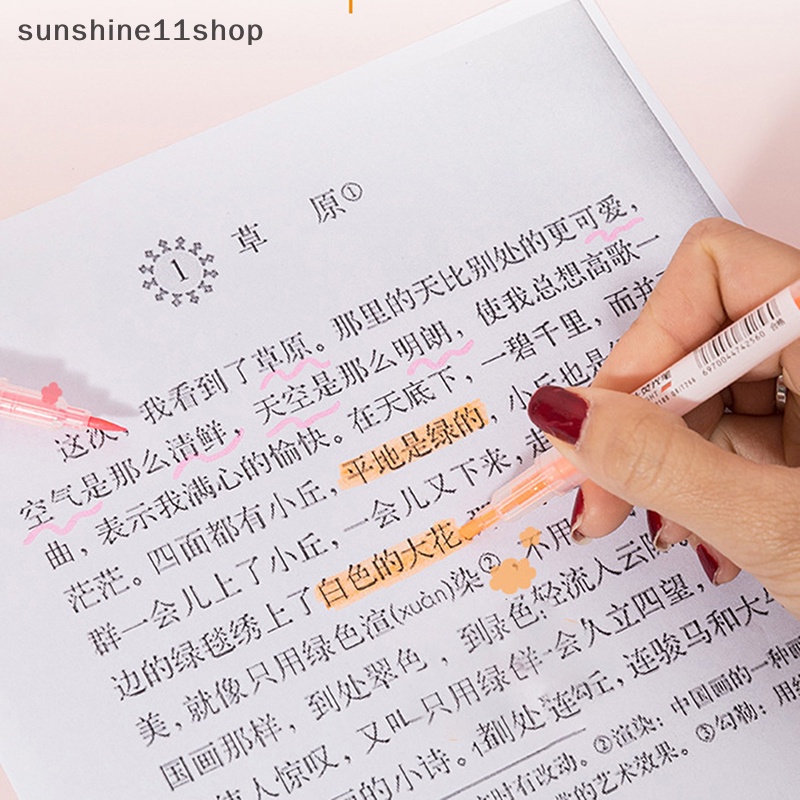 sunshine11shop
1 草 原①
这次，我看到了草原。那里的天比别处的更可爱，
空气是那么清鲜，天空是那么明朗，使我总想高歌一
曲，表示我满心的愉快。在天底下，一碧千里，而并
茫茫。四面都有小丘，平地是绿的，小丘也是
群一会儿上了小丘，一会儿又下来，走
边的绿毯绣上了白色的大花
美，就像只用绿色渲(xuàn)染②，不用
国画那样，到处翠色，到 色轻流入云际
人惊叹，又 只用绿 会久立四望，
的小诗。 处连 丘，连骏马和大
时有改动。②渲染：中国画的一种
的艺术效果。③勾勒：用
荧光笔
6970044742560
合格